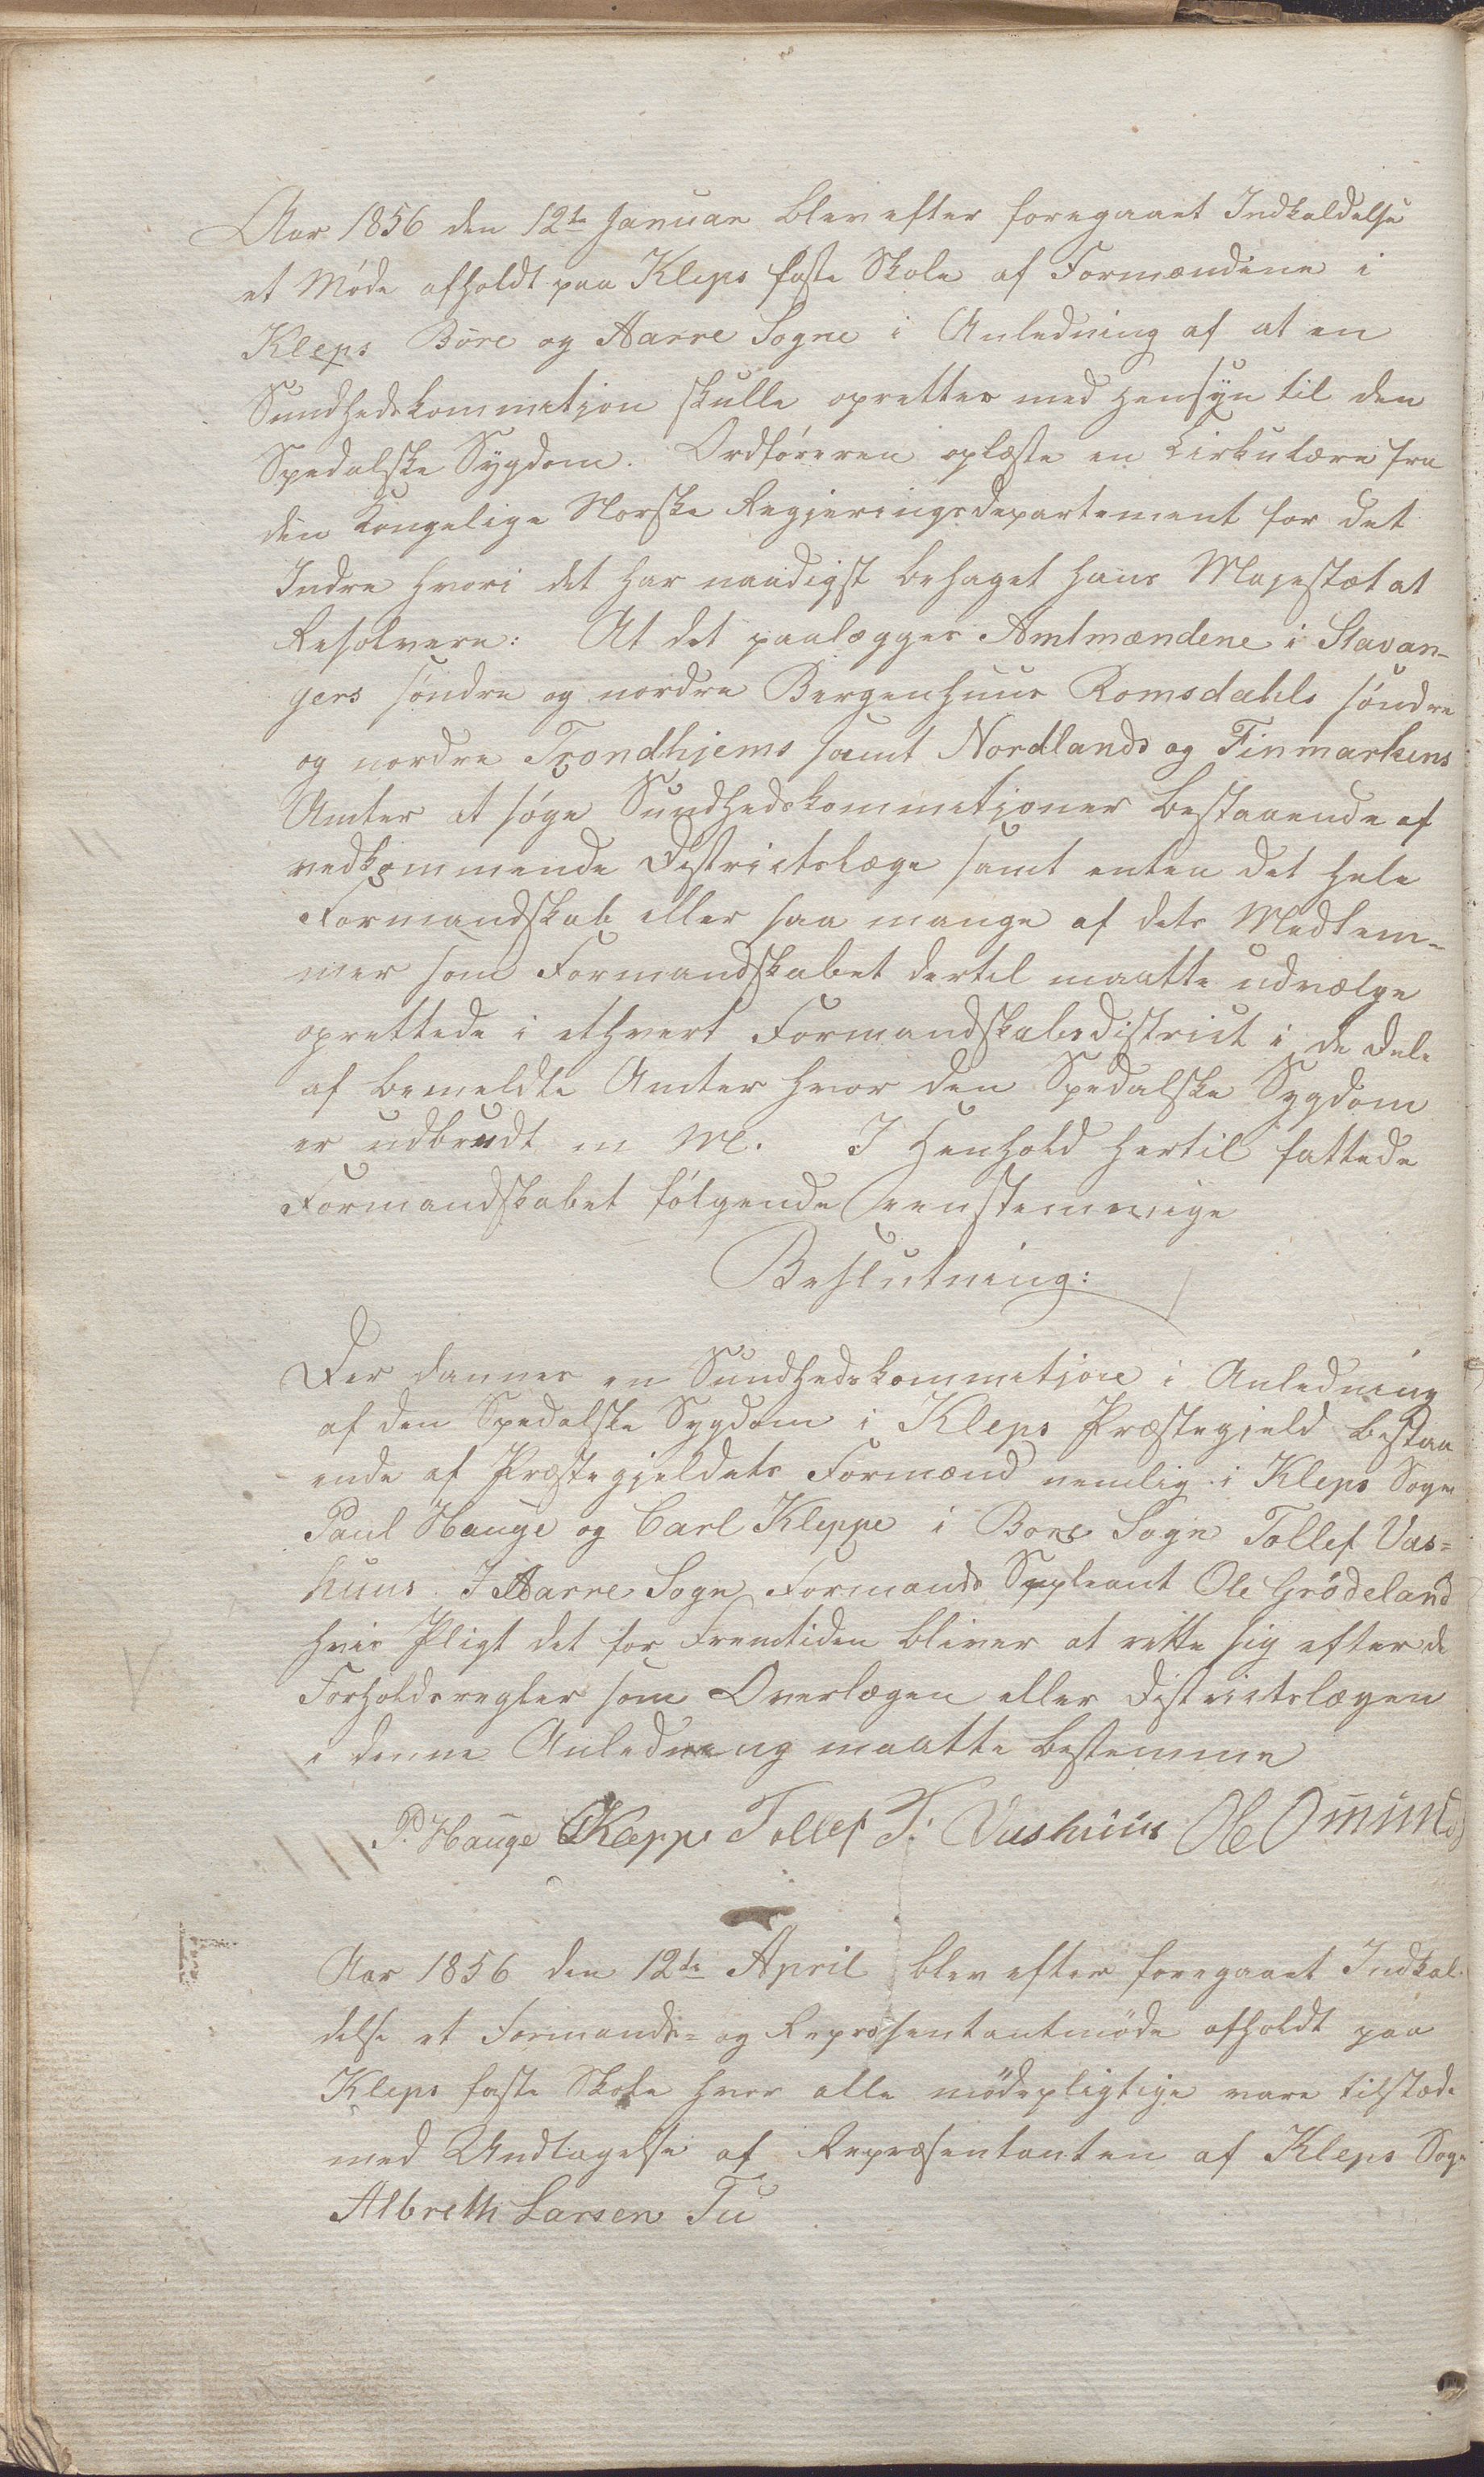 Aar 1856 den 12te Januar blev efter foregaaet Indkaldelse
et Møde afholdt paa Kleps faste Skole af Formændene i
Kleps Børe og Aarre Sogne i Anledning af at en
Sundhedskommitjon skulle oprettes med Hensyn til den
Spedalske Sygdom. Ordføreren oplæste en Cirkulære fra
den Kongelige Norske Regjeringsdepartement for det
Indre hvori det har naadigst behaget hans Majestæt at
Resolvere: At det paalægges Amtmændene i Stavan-
gers søndre og nordre Bergenhuus Romsdahls søndre
og nordre Trondhjems samt Nordlands og Finmarkens
Amter at søge Sundhedskommitjoner bestaaende af
vedkommende Districtslæge samt enten det hele
Formandskab eller saa mange af dets Medlem-
mer som Formandskabet dertil maatte udvælge
oprettede i ethvert Formandskabsdistrict i de Dele
af bemeldte Amter hvor den Spedalske Sygdom
er udbrudt m M. I Henhold hertil fattede
Formandskabet følgende eenstemmige
Beslutning:
Der dannes en Sundhedskommitjoe i Anledning
af den Spedalske Sygdom i Kleps Præstegjeld bestaa
ende af Præstegjeldets Formænd nemlig i Kleps Sogn
Paul Hauge og Carl Kleppe i Bore Sogn Tollef Vas=
huus. I Aarre Sogn Formands Supleant Ole Grödeland
hvis Pligt det for Fremtiden bliver at rette sig efter de
Forholdsregler som Overlægen eller Districtslægen
i denne Anledning maatte bestemme
P. Hauge CKlepp Tollef T. Vashuus Ole Omund
Aar 1856 den 12te April blev efter foregaaet Indkal-
delse et Formands- og Repræsentantmøde afholdt paa
Kleps faste Skole hvor alle mødepligtige vare tilstede
med Undtagelse af Repræsentanten af Kleps Sogn
Albreth Larsen Tu